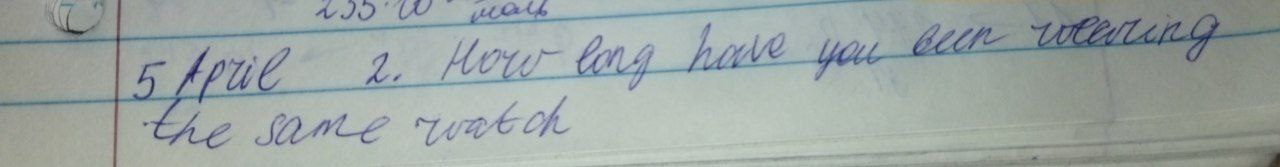 моль
5 April 2. How long have you been wearing
the same watch